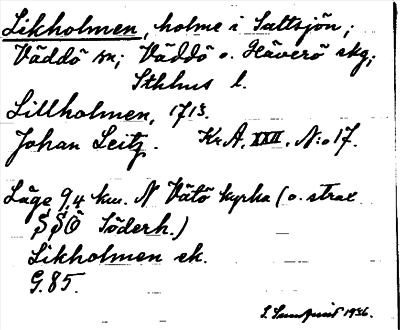 Likholmen, holme i Saltsjön;
Väddö sn; Väddö o. Häverö skg;
Sthlms l.
Lillholmen, 1713.
Johan Leitz. Kr.A. XXII, N:o 17.
Läge 9,4 km. N Vätö kyrka (o. strax
SSÖ Söderh.)
Likholmen ek.
G.85.
1936.